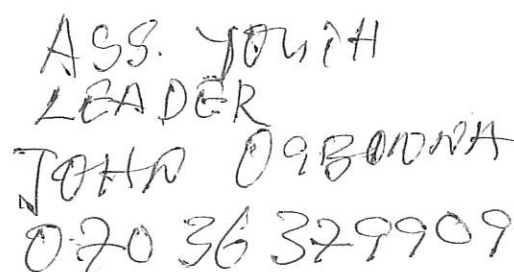 ASS. YOUTH
LEADER
JOHN OGBONNA
07036329909